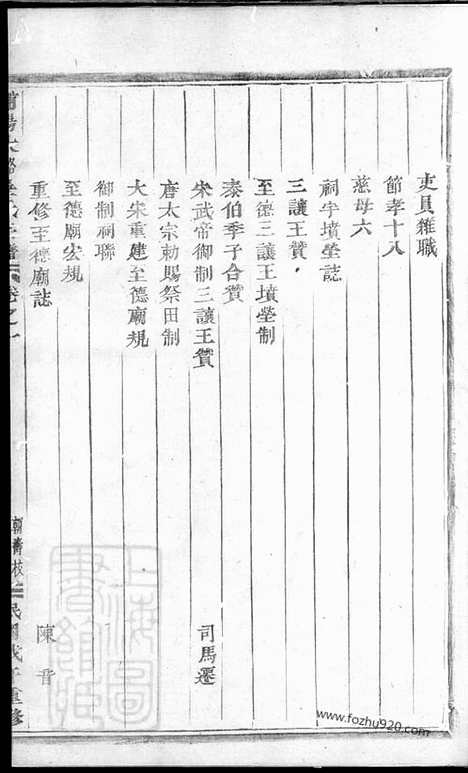 吏員雜職
節孝十八
慈母六
祠宇墳塋誌
三讓王贊
至德三讓王墳塋制
泰伯季子合贊
宋武帝御制三讓王贊 司馬遷
唐太宗勅賜祭田制
大宋重建至德廟規
御制祠聯
至德廟宏規
重修至德廟誌 陳音
卷之一
重修
上海圖書館藏
www.fozhu920.com